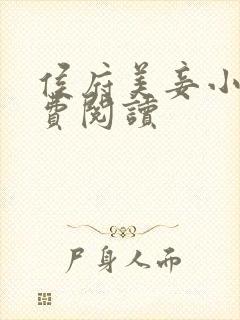 侯府美妾小
費閱讀
尸身人而